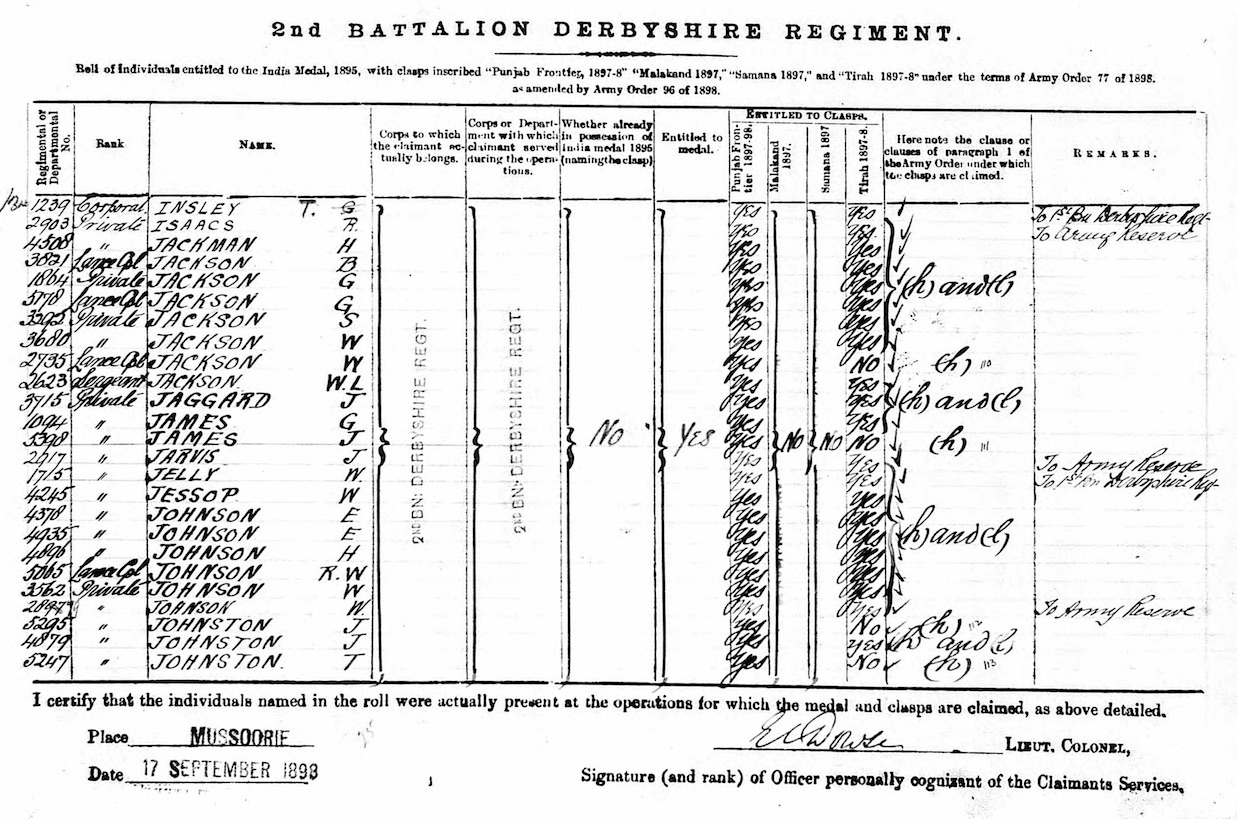 2nd BATTALION DERBYSHIRE REGIMENT.
Roll of Individuals entitled to the India Medal, 1895, with clasps inscribed "Punjab Frontier, 1897-8" "Malakand 1897," "Samana 1897," and "Tirah 1897-8" under the terms of Army Order 77 of 1898.
as amended by Army Order 96 of 1898.
Regimental or Departmental No.
Rank
NAME.
Corps to which the claimant actually belongs.
Corps or Department with which claimant served during the operations.
Whether already in possession of India medal 1895 (naming the clasp)
Entitled to medal.
ENTITLED TO CLASPS.
Punjab Frontier 1897-98.
Malakand 1897.
Samana 1897
Tirah 1897-8.
Here note the clause or clauses of paragraph 1 of the Army Order under which the clasps are claimed.
REMARKS.
1239 Corporal INSLEY T. G Yes Yes To 1st Bn Derbyshire Regt
2903 Private ISAACS R. Yes Yes To Army Reserve
4508 " JACKMAN H Yes Yes
3821 Lance Cpl JACKSON B Yes Yes
1864 Private JACKSON G Yes Yes (h) and (l)
5178 Lance Cpl JACKSON G Yes Yes
3292 Private JACKSON S Yes Yes
3680 " JACKSON W Yes Yes
2735 Lance Cpl JACKSON W Yes NO (h) 110
2623 Sergeant JACKSON W.L Yes Yes
3715 Private JAGGARD J Yes Yes (h) and (l)
1094 " JAMES G Yes Yes
5398 " JAMES J Yes NO (h) 111
2117 " JARVIS J Yes Yes To Army Reserve
2ND BN: DERBYSHIRE REGT.
2ND BN: DERBYSHIRE REGT.
NO YES NO NO
1715 " JELLY W. Yes Yes To 1st Bn Derbyshire Regt
4245 " JESSOP W Yes Yes
4378 " JOHNSON E Yes Yes
4935 " JOHNSON E Yes Yes (h) and (l)
4896 " JOHNSON H Yes Yes
5065 Lance Cpl JOHNSON R.W Yes Yes
3562 Private JOHNSON W Yes Yes
" JOHNSON W. Yes Yes To Army Reserve
5295 " JOHNSTON J Yes No (h) 112
4879 " JOHNSTON J Yes Yes (h) and (l)
5247 " JOHNSTON. T Yes No (h) 113
I certify that the individuals named in the roll were actually present at the operations for which the medal and clasps are claimed, as above detailed.
Place MUSSOORIE
LIEUT. COLONEL,
Date 17 SEPTEMBER 1898
Signature (and rank) of Officer personally cognizant of the Claimants Services.